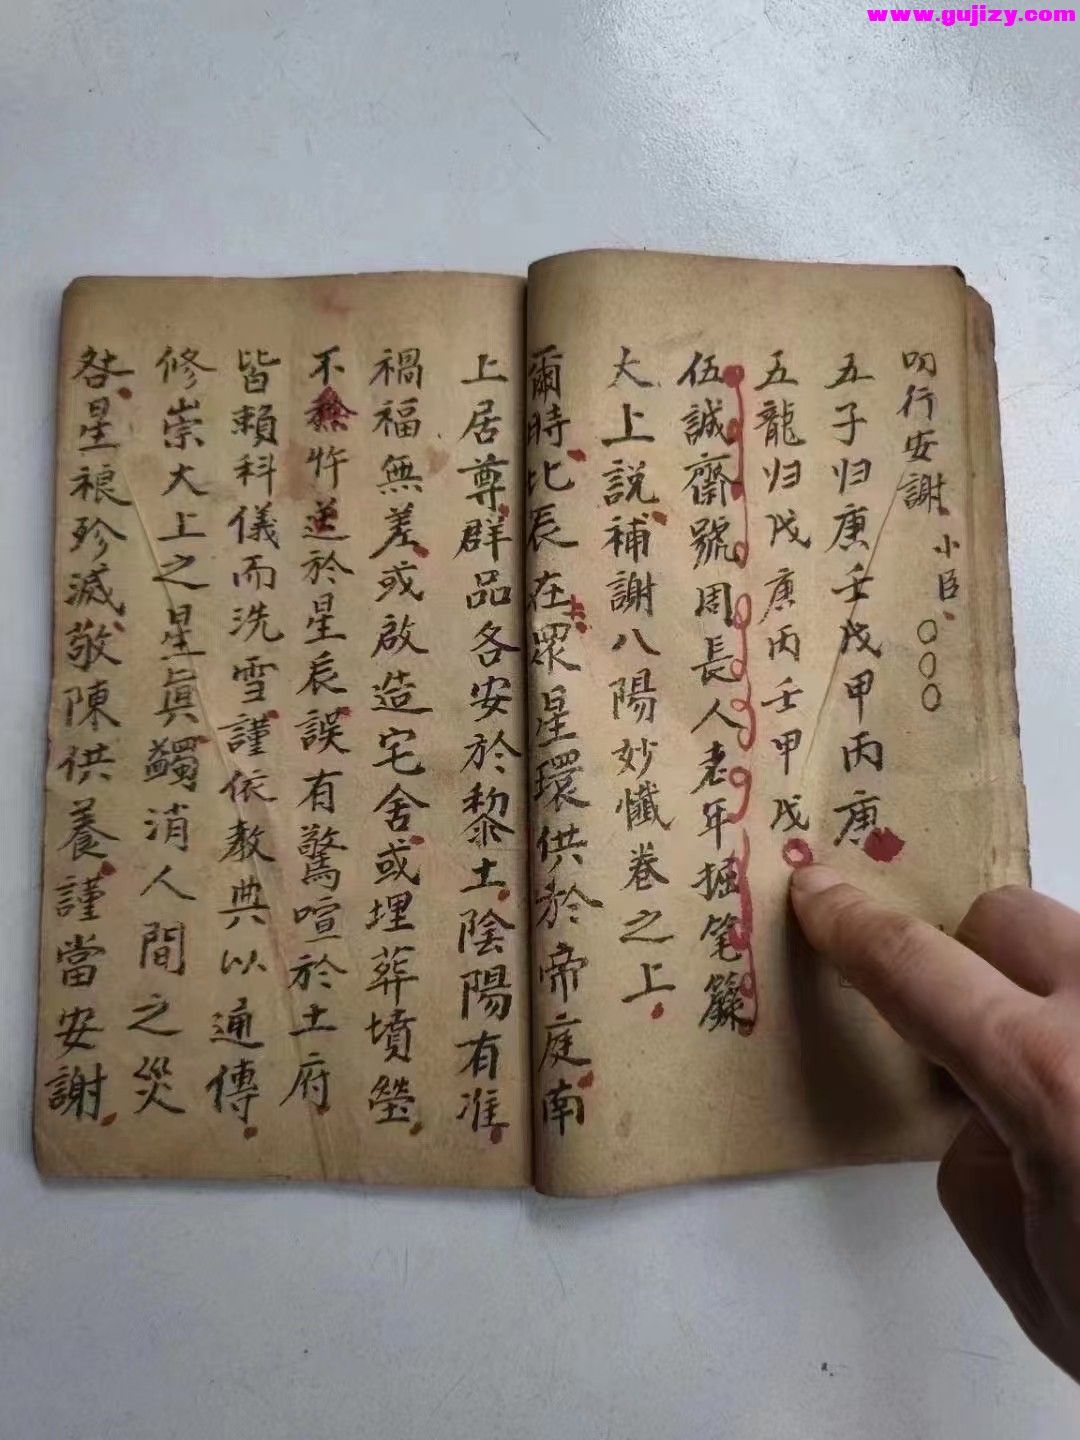 www.gujizy.com
叨行安謝 小臣 〇〇〇
五子归庚壬戊甲丙庚
五龍归戊庚丙壬甲戊
伍誠齋號周長人老年掘笔
大上説補謝八陽妙懺卷之上
爾時北辰在眾星環供於帝庭南
上居尊群品各安於黎土陰陽有准
禍福無差或啟造宅舍或埋葬墳塋
不 忤逆於星辰誤有驚喧於土府
皆賴科儀而洗雪謹依教典以通傳
修崇大上之星眞蠲消人間之災
星 珍滅敬陳供養謹當安謝